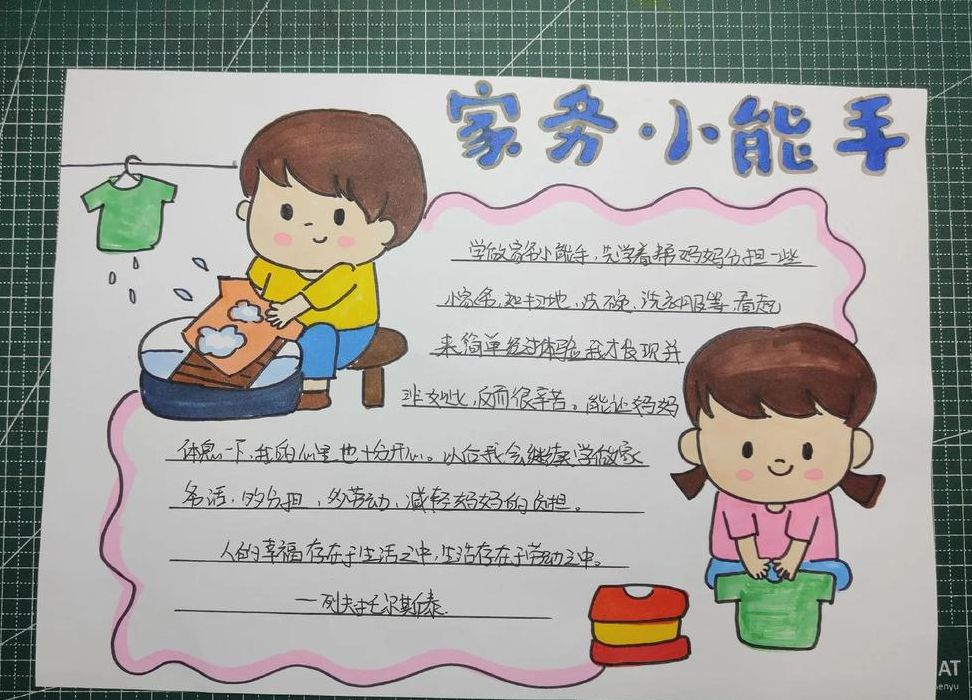 家务小能手
学做家务小能手,先学着帮妈妈分担一些
小家务,如扫地,洗碗,洗衣服等,看起
来简单经过体验我才发现并
非如此,反而很辛苦。能让妈妈
休息一下,我的心里也十分开心。以后我会继续学做家
务活,多分担,多劳动,减轻妈妈的负担。
人的幸福存在于生活之中,生活存在于劳动之中。
一列夫托尔斯泰
AT
enyu